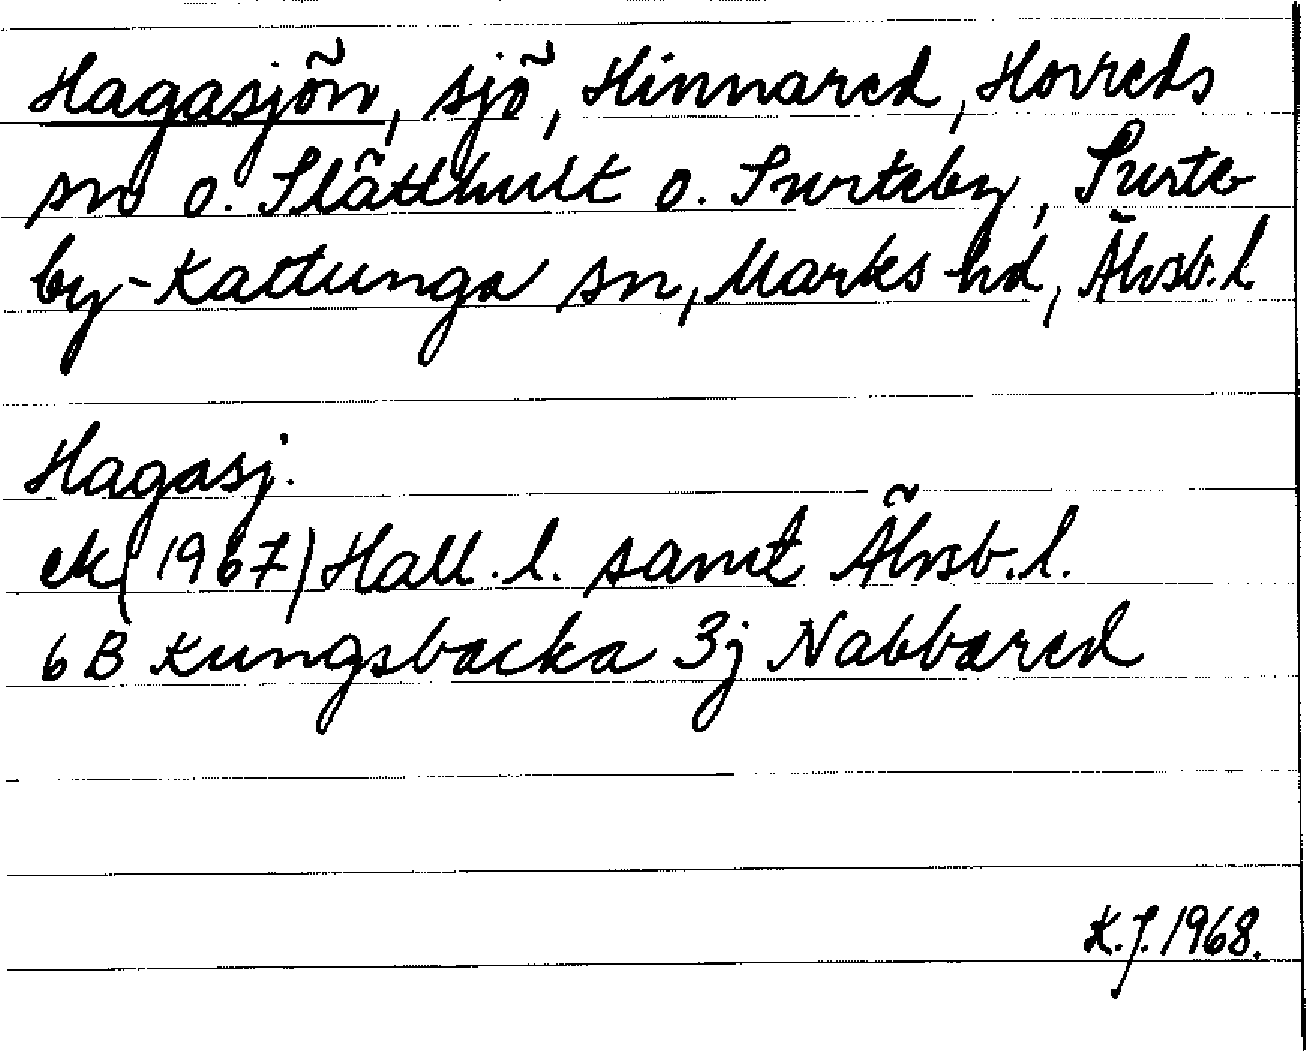 Hagasjön, sjö, Hinnared, Horreds
sn o. Slätthult o. Surteby, Surte-
by-Kattunga sn, Marks hd, Älvsb. l
Hagasj.
ek (1967) Hall. l. samt Älvsb. l.
6B Kungsbacka 3j Nabbared
K.J. 1968.